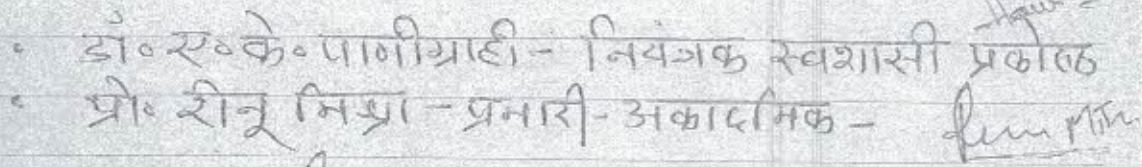 डॉ० ए० के० पाणीग्राही - नियंत्रक स्वशासी प्रकोष्ठ
प्रो० रीनू मिश्रा - प्रभारी - अकादमिक -